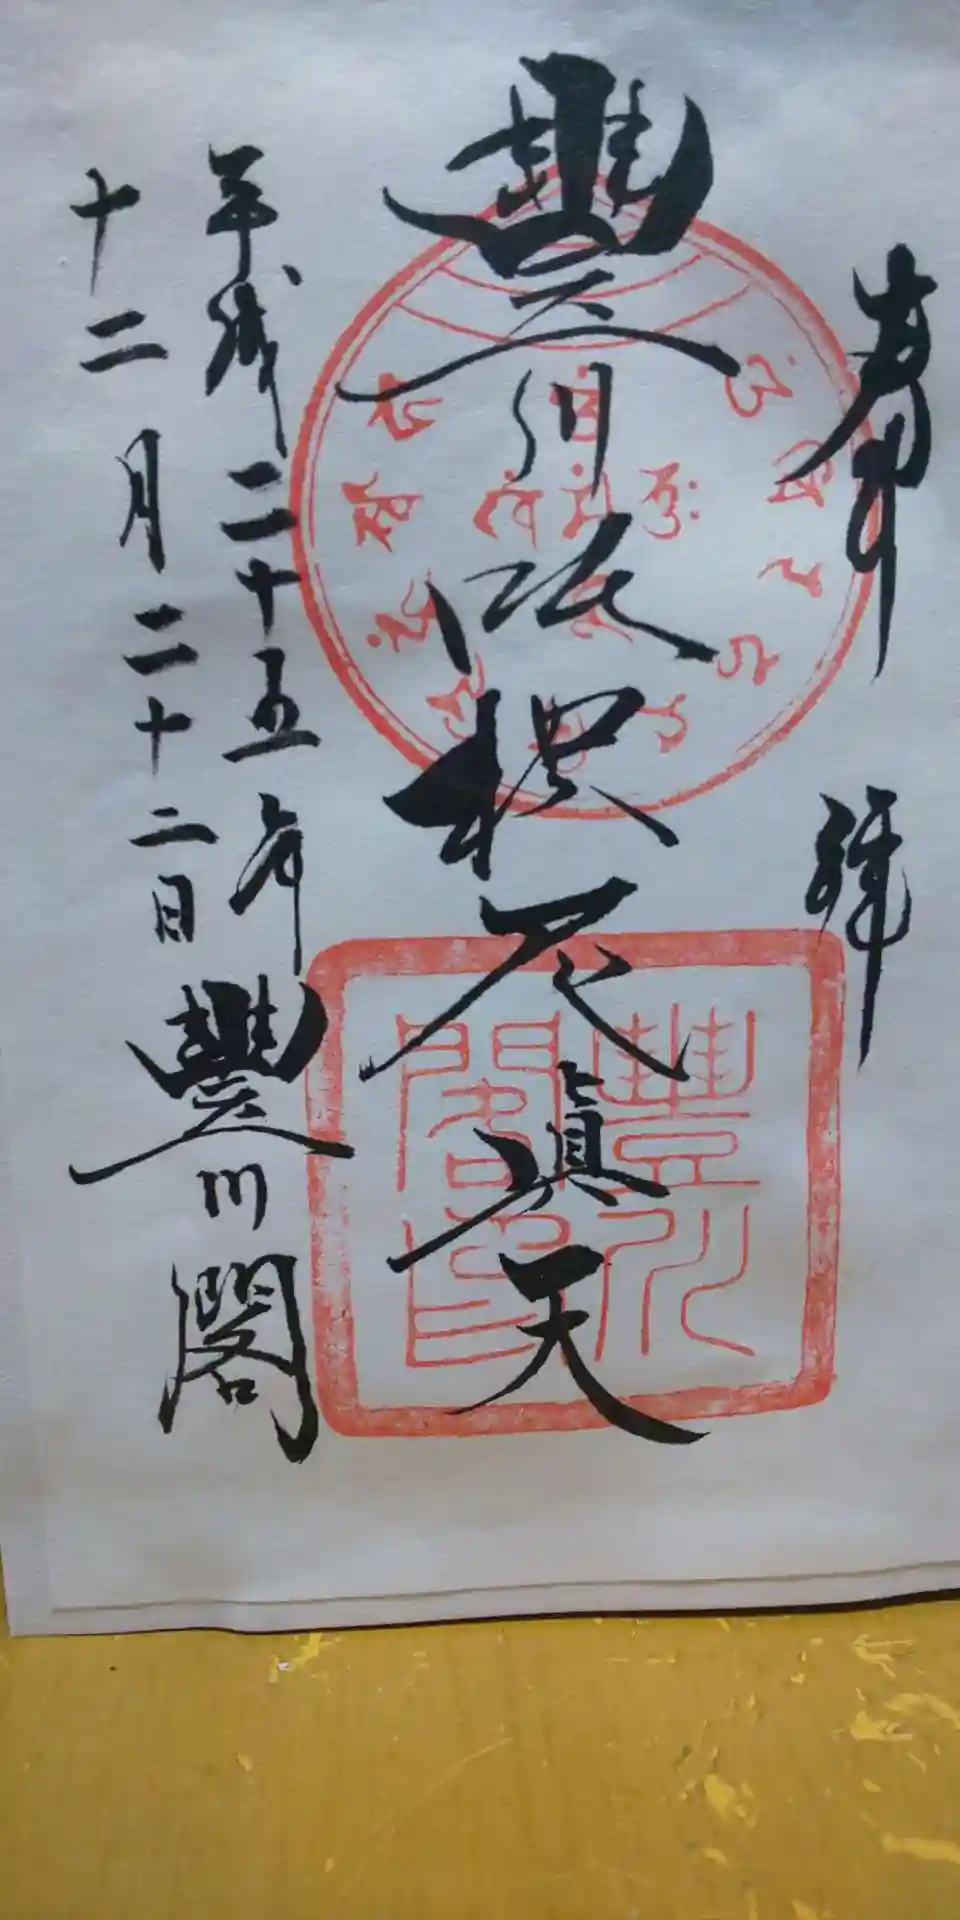 奉拜
豐川吒枳尼眞天
平成二十五年
十二月二十二日
豐川閣
豐川
閣印